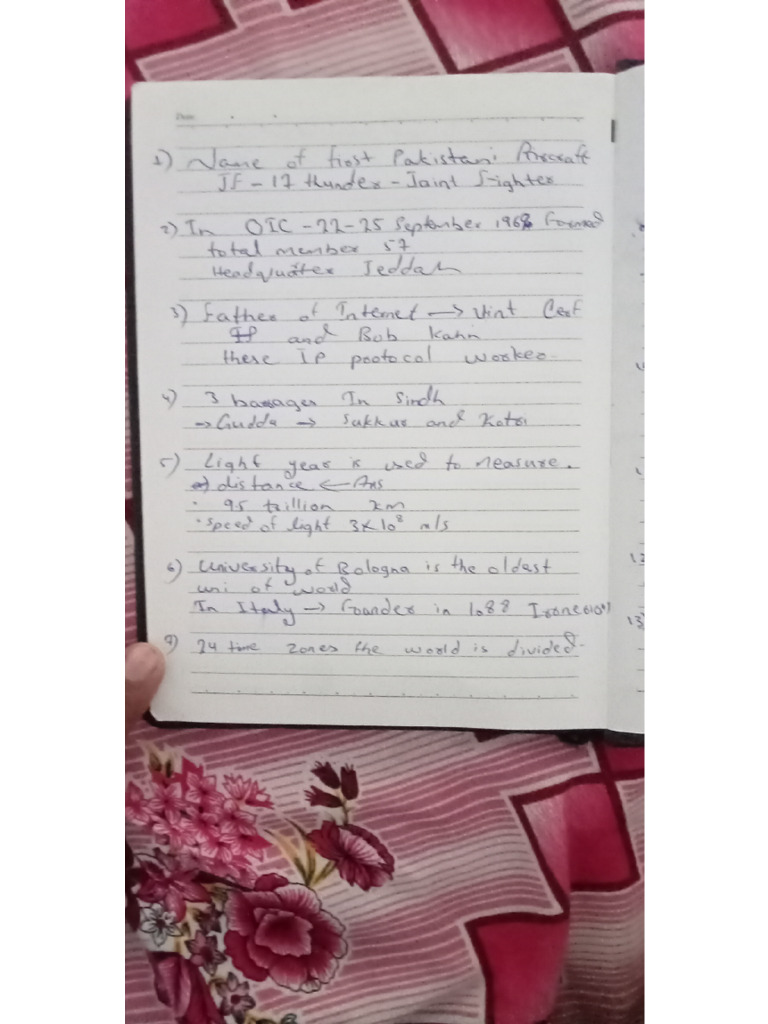 Date
1) Name of first Pakistani Aircraft
JF - 17 thunder - Joint Fighter
2) In OIC - 22-25 September 1969 Formed
total member 57
Headquater Jeddah
3) Father of Internet → Vint Cerf
and Bob Kahn
there IP protocol worked
4) 3 barrages In Sindh
→ Guddu → Sukkur and Kotri
5) Light year is used to measure.
distance ← Ans
· 9.5 trillion km
· speed of light 3×10⁸ m/s
6) University of Bologna is the oldest
uni of world
In Italy → Founder in 1088
7) 24 time zones the world is divided.
12
13